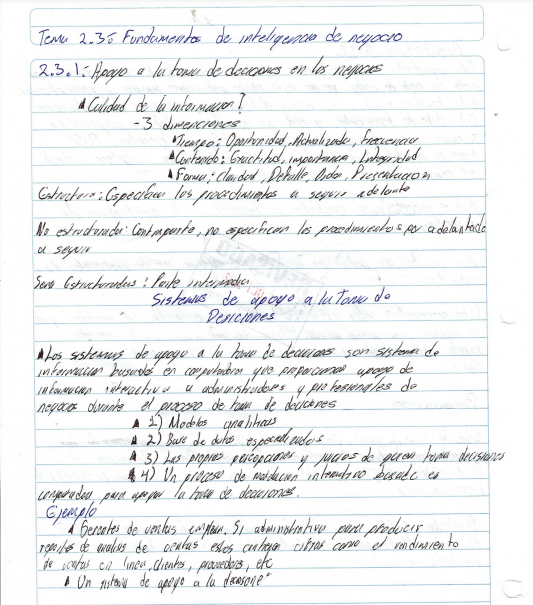 Tema 2.3: Fundamentos de inteligencia de negocio
2.3.1: Apoyo a la toma de decisiones en los negocios
Calidad de la informacion?
- 3 dimenciones
Tiempo: Oportunidad, Actualizada, frecuencia
Contenido: Exactitud, importancia, Integridad
Forma: Claridad, Detalle, Orden, Presentacion
Estructura: Especifican los procedimientos a seguir adelante
No estructurados: Contraparte, no especifican los procedimientos por adelantado
a seguir
Semi Estructurados: Parte intermedia
Sistemas de apoyo a la toma de
Desiciones
Los sistemas de apoyo a la toma de decisiones son sistema de
informacion basados en computadoras que proporcionan apoyo de
informacion interactivo a administradores y profesionales de
negocios durante el proceso de toma de decisiones
1) Modelos analiticos
2) Base de datos especializadas
3) Las propias percepciones y juicios de quien toma decisiones
4) Un proceso de modelacion interactivo basado en
computadora para apoyar la toma de decisiones.
Ejemplo
Gerentes de ventas emplean. SI administrativa para producir
reportes de analisis de ventas estos contienen cifras como el rendimiento
de ventas en linea, clientes, proveedores, etc
Un sistema de apoyo a la